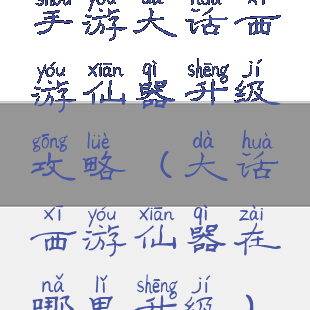 shǒu yóu dà huà xī
手游大话西
yóu xiān qì shēng jí
游仙器升级
gōng lüè dà huà
攻略(大话
xī yóu xiān qì zài
西游仙器在
nǎ lǐ shēng jí
哪里升级)